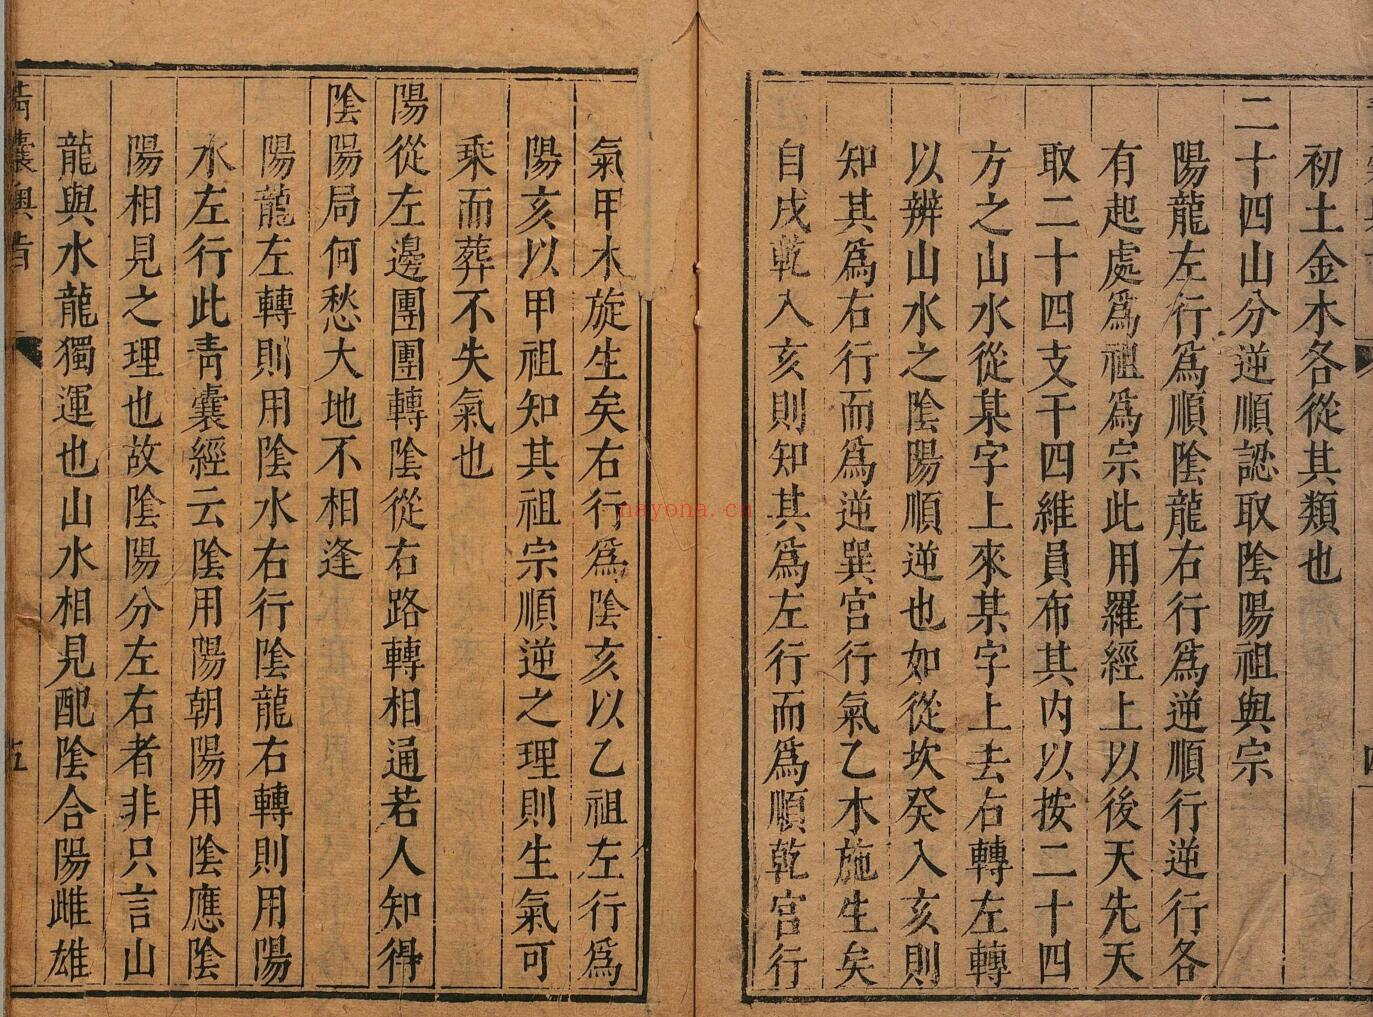 初土金木各從其類也
二十四山分逆順認取陰陽祖與宗
陽龍左行爲順陰龍右行爲逆順行逆行各
有起處爲祖爲宗此用羅經上以後天先天
取二十四支干四維員布其内以按二十四
方之山水從某字上來某字上去右轉左轉
以辨山水之陰陽順逆也如從坎癸入亥則
知其爲右行而爲逆巽宫行氣乙木施生矣
自戌乾入亥則知其爲左行而爲順乾宫行
氣甲木旋生矣右行爲陰亥以乙祖左行爲
陽亥以甲祖知其祖宗順逆之理則生氣可
乘而葬不失氣也
陽從左邊團團轉陰從右路轉相通若人知得
陰陽局何愁大地不相逢
陽龍左轉則用陰水右行陰龍右轉則用陽
水左行此靑囊經云陰用陽朝陽用陰應陰
陽相見之理也故陰陽分左右者非只言山
龍與水龍獨運也山水相見配陰合陽雌雄
靑囊奥旨
五
nayona.cn